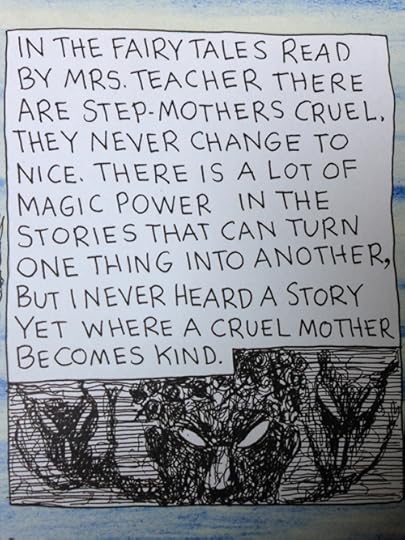 IN THE FAIRY TALES READ
BY MRS. TEACHER THERE
ARE STEP-MOTHERS CRUEL.
THEY NEVER CHANGE TO
NICE. THERE IS A LOT OF
MAGIC POWER IN THE
STORIES THAT CAN TURN
ONE THING INTO ANOTHER,
BUT I NEVER HEARD A STORY
YET WHERE A CRUEL MOTHER
BECOMES KIND.